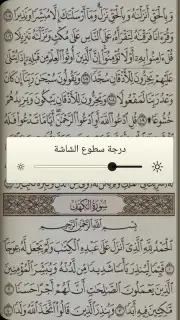 وَبِالْحَقِّ أَنزَلْنَٰهُ وَبِالْحَقِّ نَزَلَ وَمَآ أَرْسَلْنَٰكَ إِلَّا مُبَشِّرًا وَنَذِيرًا
وَقُرْءَانًا فَرَقْنَٰهُ لِتَقْرَأَهُۥ عَلَى النَّاسِ عَلَىٰ مُكْثٍ وَنَزَّلْنَٰهُ تَنزِيلًا
قُلْ ءَامِنُوا بِهِۦٓ أَوْ لَا تُؤْمِنُوٓا إِنَّ الَّذِينَ أُوتُوا الْعِلْمَ مِن قَبْلِهِۦٓ إِذَا يُتْلَىٰ
عَلَيْهِمْ يَخِرُّونَ لِلْأَذْقَانِ سُجَّدًا وَيَقُولُونَ سُبْحَٰنَ رَبِّنَآ إِن كَانَ
وَعْدُ رَبِّنَا لَمَفْعُولًا وَيَخِرُّونَ لِلْأَذْقَانِ يَبْكُونَ وَيَزِيدُهُمْ
خُشُوعًا قُلِ ادْعُوا اللَّهَ أَوِ ادْعُوا الرَّحْمَٰنَ
درجة سطوع الشاشة
سُورَةُ الكَهْفِ
بِسْمِ اللَّهِ الرَّحْمَٰنِ الرَّحِيمِ
الْحَمْدُ لِلَّهِ الَّذِىٓ أَنزَلَ عَلَىٰ عَبْدِهِ الْكِتَٰبَ وَلَمْ يَجْعَل لَّهُۥ عِوَجَا
قَيِّمًا لِّيُنذِرَ بَأْسًا شَدِيدًا مِّن لَّدُنْهُ وَيُبَشِّرَ الْمُؤْمِنِينَ
الَّذِينَ يَعْمَلُونَ الصَّٰلِحَٰتِ أَنَّ لَهُمْ أَجْرًا حَسَنًا
مَّٰكِثِينَ فِيهِ أَبَدًا وَيُنذِرَ الَّذِينَ قَالُوا اتَّخَذَ اللَّهُ وَلَدًا